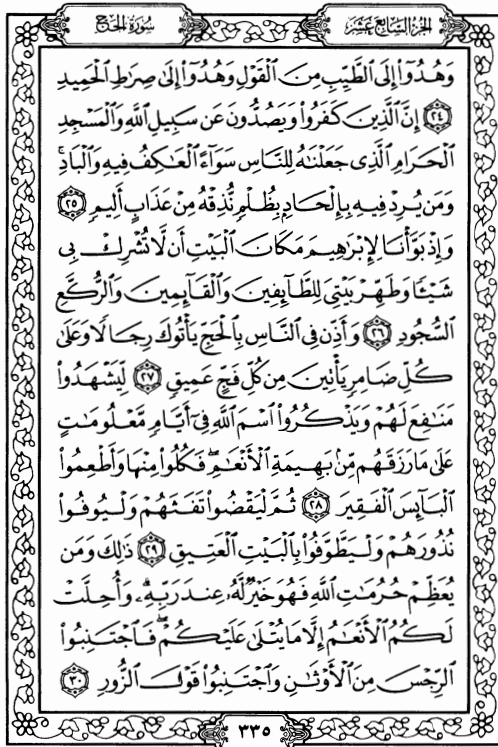 سُورَةُ الحَجِّ الجُزْءُ السَّابِعَ عَشَرَ
وَهُدُوٓا۟ إِلَى ٱلطَّيِّبِ مِنَ ٱلْقَوْلِ وَهُدُوٓا۟ إِلَىٰ صِرَٰطِ ٱلْحَمِيدِ
٢٤ إِنَّ ٱلَّذِينَ كَفَرُوا۟ وَيَصُدُّونَ عَن سَبِيلِ ٱللَّهِ وَٱلْمَسْجِدِ
ٱلْحَرَامِ ٱلَّذِى جَعَلْنَٰهُ لِلنَّاسِ سَوَآءً ٱلْعَٰكِفُ فِيهِ وَٱلْبَادِ ۚ
وَمَن يُرِدْ فِيهِ بِإِلْحَادٍۭ بِظُلْمٍ نُّذِقْهُ مِنْ عَذَابٍ أَلِيمٍ ٢٥
وَإِذْ بَوَّأْنَا لِإِبْرَٰهِيمَ مَكَانَ ٱلْبَيْتِ أَن لَّا تُشْرِكْ بِى
شَيْـًٔا وَطَهِّرْ بَيْتِىَ لِلطَّآئِفِينَ وَٱلْقَآئِمِينَ وَٱلرُّكَّعِ
ٱلسُّجُودِ ٢٦ وَأَذِّن فِى ٱلنَّاسِ بِٱلْحَجِّ يَأْتُوكَ رِجَالًا وَعَلَىٰ
كُلِّ ضَامِرٍ يَأْتِينَ مِن كُلِّ فَجٍّ عَمِيقٍ ٢٧ لِّيَشْهَدُوا۟
مَنَٰفِعَ لَهُمْ وَيَذْكُرُوا۟ ٱسْمَ ٱللَّهِ فِىٓ أَيَّامٍ مَّعْلُومَٰتٍ
عَلَىٰ مَا رَزَقَهُم مِّنۢ بَهِيمَةِ ٱلْأَنْعَٰمِ ۖ فَكُلُوا۟ مِنْهَا وَأَطْعِمُوا۟
ٱلْبَآئِسَ ٱلْفَقِيرَ ٢٨ ثُمَّ لْيَقْضُوا۟ تَفَثَهُمْ وَلْيُوفُوا۟
نُذُورَهُمْ وَلْيَطَّوَّفُوا۟ بِٱلْبَيْتِ ٱلْعَتِيقِ ٢٩ ذَٰلِكَ وَمَن
يُعَظِّمْ حُرُمَٰتِ ٱللَّهِ فَهُوَ خَيْرٌ لَّهُۥ عِندَ رَبِّهِۦ ۗ وَأُحِلَّتْ
لَكُمُ ٱلْأَنْعَٰمُ إِلَّا مَا يُتْلَىٰ عَلَيْكُمْ ۖ فَٱجْتَنِبُوا۟
ٱلرِّجْسَ مِنَ ٱلْأَوْثَٰنِ وَٱجْتَنِبُوا۟ قَوْلَ ٱلزُّورِ ٣٠
٣٣٥